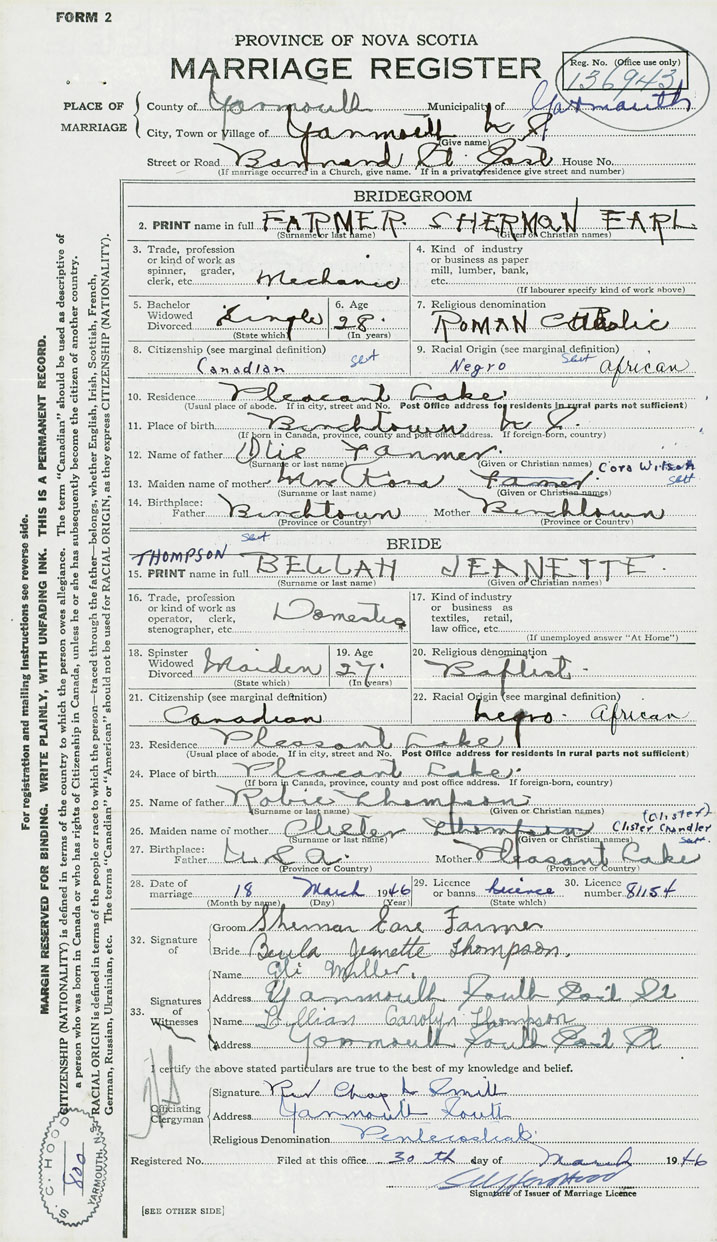 FORM 2
PROVINCE OF NOVA SCOTIA
MARRIAGE REGISTER
Reg. No. (Office use only)
136943
PLACE OF MARRIAGE
County of Yarmouth Municipality of Yarmouth
City, Town or Village of Yarmouth N S
(Give name)
Street or Road Barnard St. East House No.
(If marriage occurred in a Church, give name. If in a private residence give street and number)
BRIDEGROOM
2. PRINT name in full FARMER. SHERMAN EARL
(Surname or last name) (Given or Christian names)
3. Trade, profession or kind of work as spinner, grader, clerk, etc. Mechanic
4. Kind of industry or business as paper mill, lumber, bank, etc.
(If labourer specify kind of work above)
5. Bachelor Widowed Divorced Single
(State which)
6. Age 28.
(In years)
7. Religious denomination
ROMAN Catholic
8. Citizenship (see marginal definition)
Canadian
9. Racial Origin (see marginal definition)
Negro African
10. Residence Pleasant Lake.
(Usual place of abode. If in city, street and No. Post Office address for residents in rural parts not sufficient)
11. Place of birth Birchtown N S.
(If born in Canada, province, county and post office address. If foreign-born, country)
12. Name of father Olie Farmer.
(Surname or last name) (Given or Christian names) Cora Wilson
13. Maiden name of mother Mrs Kora Farmer.
(Surname or last name) (Given or Christian names)
14. Birthplace: Father Birchtown Mother Birchtown
(Province or Country) (Province or Country)
BRIDE
THOMPSON
15. PRINT name in full BEULAH JEANETTE.
(Surname or last name) (Given or Christian names)
16. Trade, profession or kind of work as operator, clerk, stenographer, etc. Domestic
17. Kind of industry or business as textiles, retail, law office, etc.
(If unemployed answer "At Home")
18. Spinster Widowed Divorced Maiden
(State which)
19. Age 27.
(In years)
20. Religious denomination
Baptist.
21. Citizenship (see marginal definition)
Canadian
22. Racial Origin (see marginal definition)
Negro. African
23. Residence Pleasant Lake
(Usual place of abode. If in city, street and No. Post Office address for residents in rural parts not sufficient)
24. Place of birth Pleasant Lake.
(If born in Canada, province, county and post office address. If foreign-born, country)
25. Name of father Robie Thompson
(Surname or last name) (Given or Christian names) (Clister)
26. Maiden name of mother Thompson Clister Chandler
(Surname or last name) (Given or Christian names)
27. Birthplace: Father U.S.A. Mother Pleasant Lake
(Province or Country) (Province or Country)
28. Date of marriage 18 March 1946
(Month by name) (Day) (Year)
29. Licence or banns Licence
(State which)
30. Licence number 81154
32. Signature of
Groom Sherman Earl Farmer
Bride Beula Jeanette Thompson.
33. Signatures of Witnesses
Name Miller.
Address Yarmouth South East St
Name Lyllian Carolyn Thompson
Address Yarmouth South East St
I certify the above stated particulars are true to the best of my knowledge and belief.
Officiating Clergyman
Signature Rev Chas Smith
Address Yarmouth South
Religious Denomination Pentecostial.
Registered No. Filed at this office 30 th day of March 1946
Signature of Issuer of Marriage Licence
[SEE OTHER SIDE]
For registration and mailing instructions see reverse side.
MARGIN RESERVED FOR BINDING. WRITE PLAINLY, WITH UNFADING INK. THIS IS A PERMANENT RECORD.
CITIZENSHIP (NATIONALITY) is defined in terms of the country to which the person owes allegiance. The term "Canadian" should be used as descriptive of
a person who was born in Canada or who has rights of Citizenship in Canada, unless he or she has subsequently become the citizen of another country.
RACIAL ORIGIN is defined in terms of the people or race to which the person—traced through the father—belongs, whether English, Irish, Scottish, French,
German, Russian, Ukrainian, etc. The terms "Canadian" or "American" should not be used for RACIAL ORIGIN, as they express CITIZENSHIP (NATIONALITY).
S. C. HOOD
800
YARMOUTH, N.S.